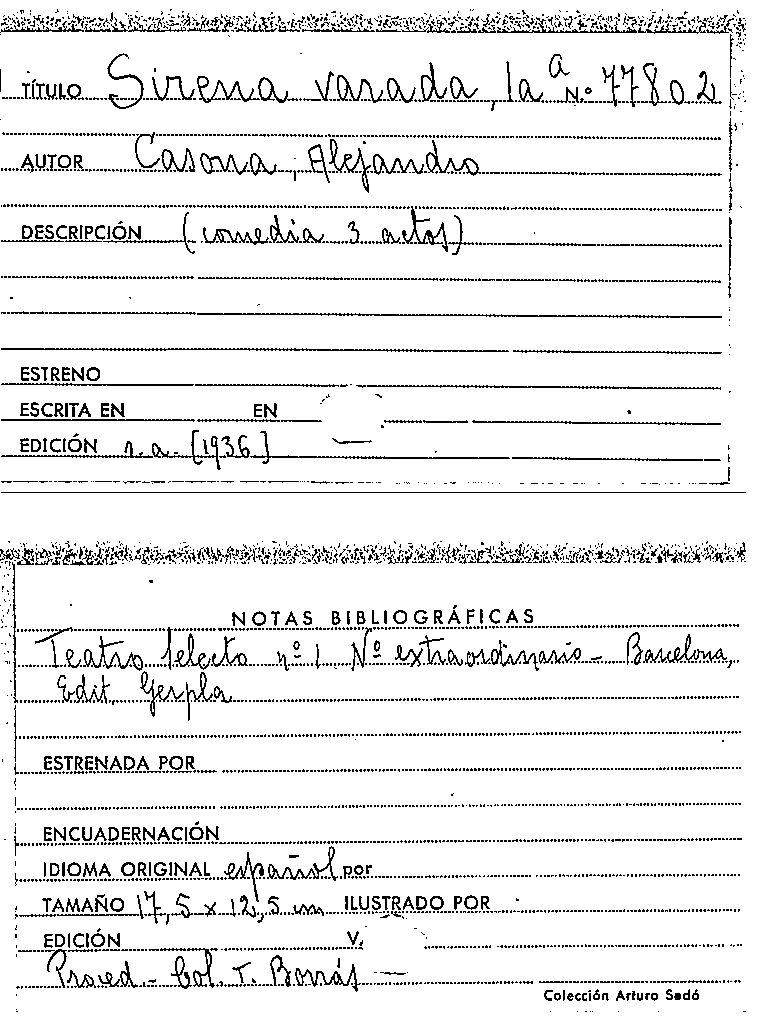 TÍTULO Sirena varada, la a N.º 77802
AUTOR Casona, Alejandro
DESCRIPCIÓN (comedia 3 actos)
ESTRENO
ESCRITA EN EN
EDICIÓN n.a. [1936]
NOTAS BIBLIOGRÁFICAS
Teatro Selecto nº 1 Nº extraordinario - Barcelona,
Edit. Gerpla
ESTRENADA POR
ENCUADERNACIÓN
IDIOMA ORIGINAL español por
TAMAÑO 17,5 x 12,5 cm ILUSTRADO POR
EDICIÓN V.
Proced. - Col. T. Borrás —
Colección Arturo Sedó